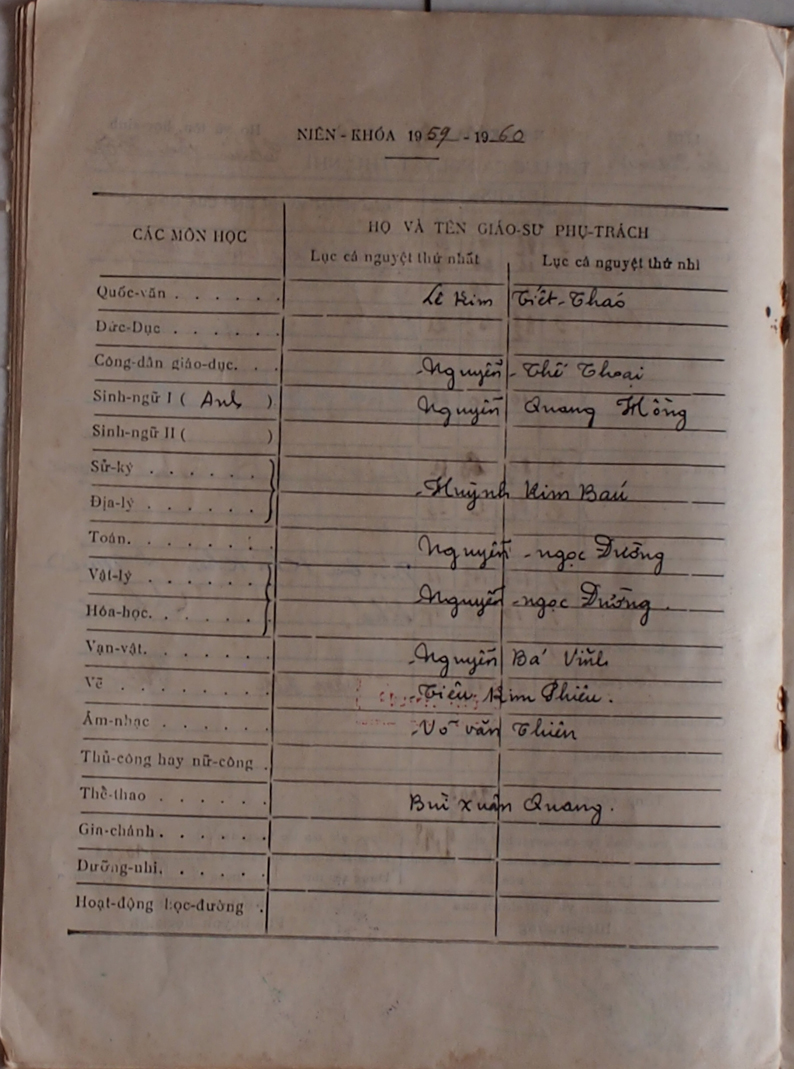 NIÊN - KHÓA 1959 - 1960
CÁC MÔN HỌC
HỌ VÀ TÊN GIÁO-SƯ PHỤ-TRÁCH
Lục cá nguyệt thứ nhất Lục cá nguyệt thứ nhì
Quốc-văn . . . . . . Lê Kim Tiết-Tháo
Đức-Dục . . . . . .
Công-dân giáo-dục. . . Nguyễn - Thế Thoại
Sinh-ngữ I ( Anh ) Nguyễn Quang Hồng
Sinh-ngữ II ( )
Sử-ký . . . . . .
Địa-lý . . . . . . Huỳnh Kim Báu
Toán. . . . . . . Nguyễn - ngọc Đường
Vật-lý . . . . . .
Hóa-học. . . . . . Nguyễn - ngọc Đường.
Vạn-vật. . . . . . Nguyễn Bá Vĩnh
Vẽ . . . . . . . Tiêu Kim Phiêu.
Âm-nhạc . . . . . Võ văn Thiên
Thủ-công hay nữ-công .
Thể-thao . . . . . . Bùi xuân Quang.
Gia-chánh . . . . . .
Dưỡng-nhi. . . . . .
Hoạt-động học-đường .